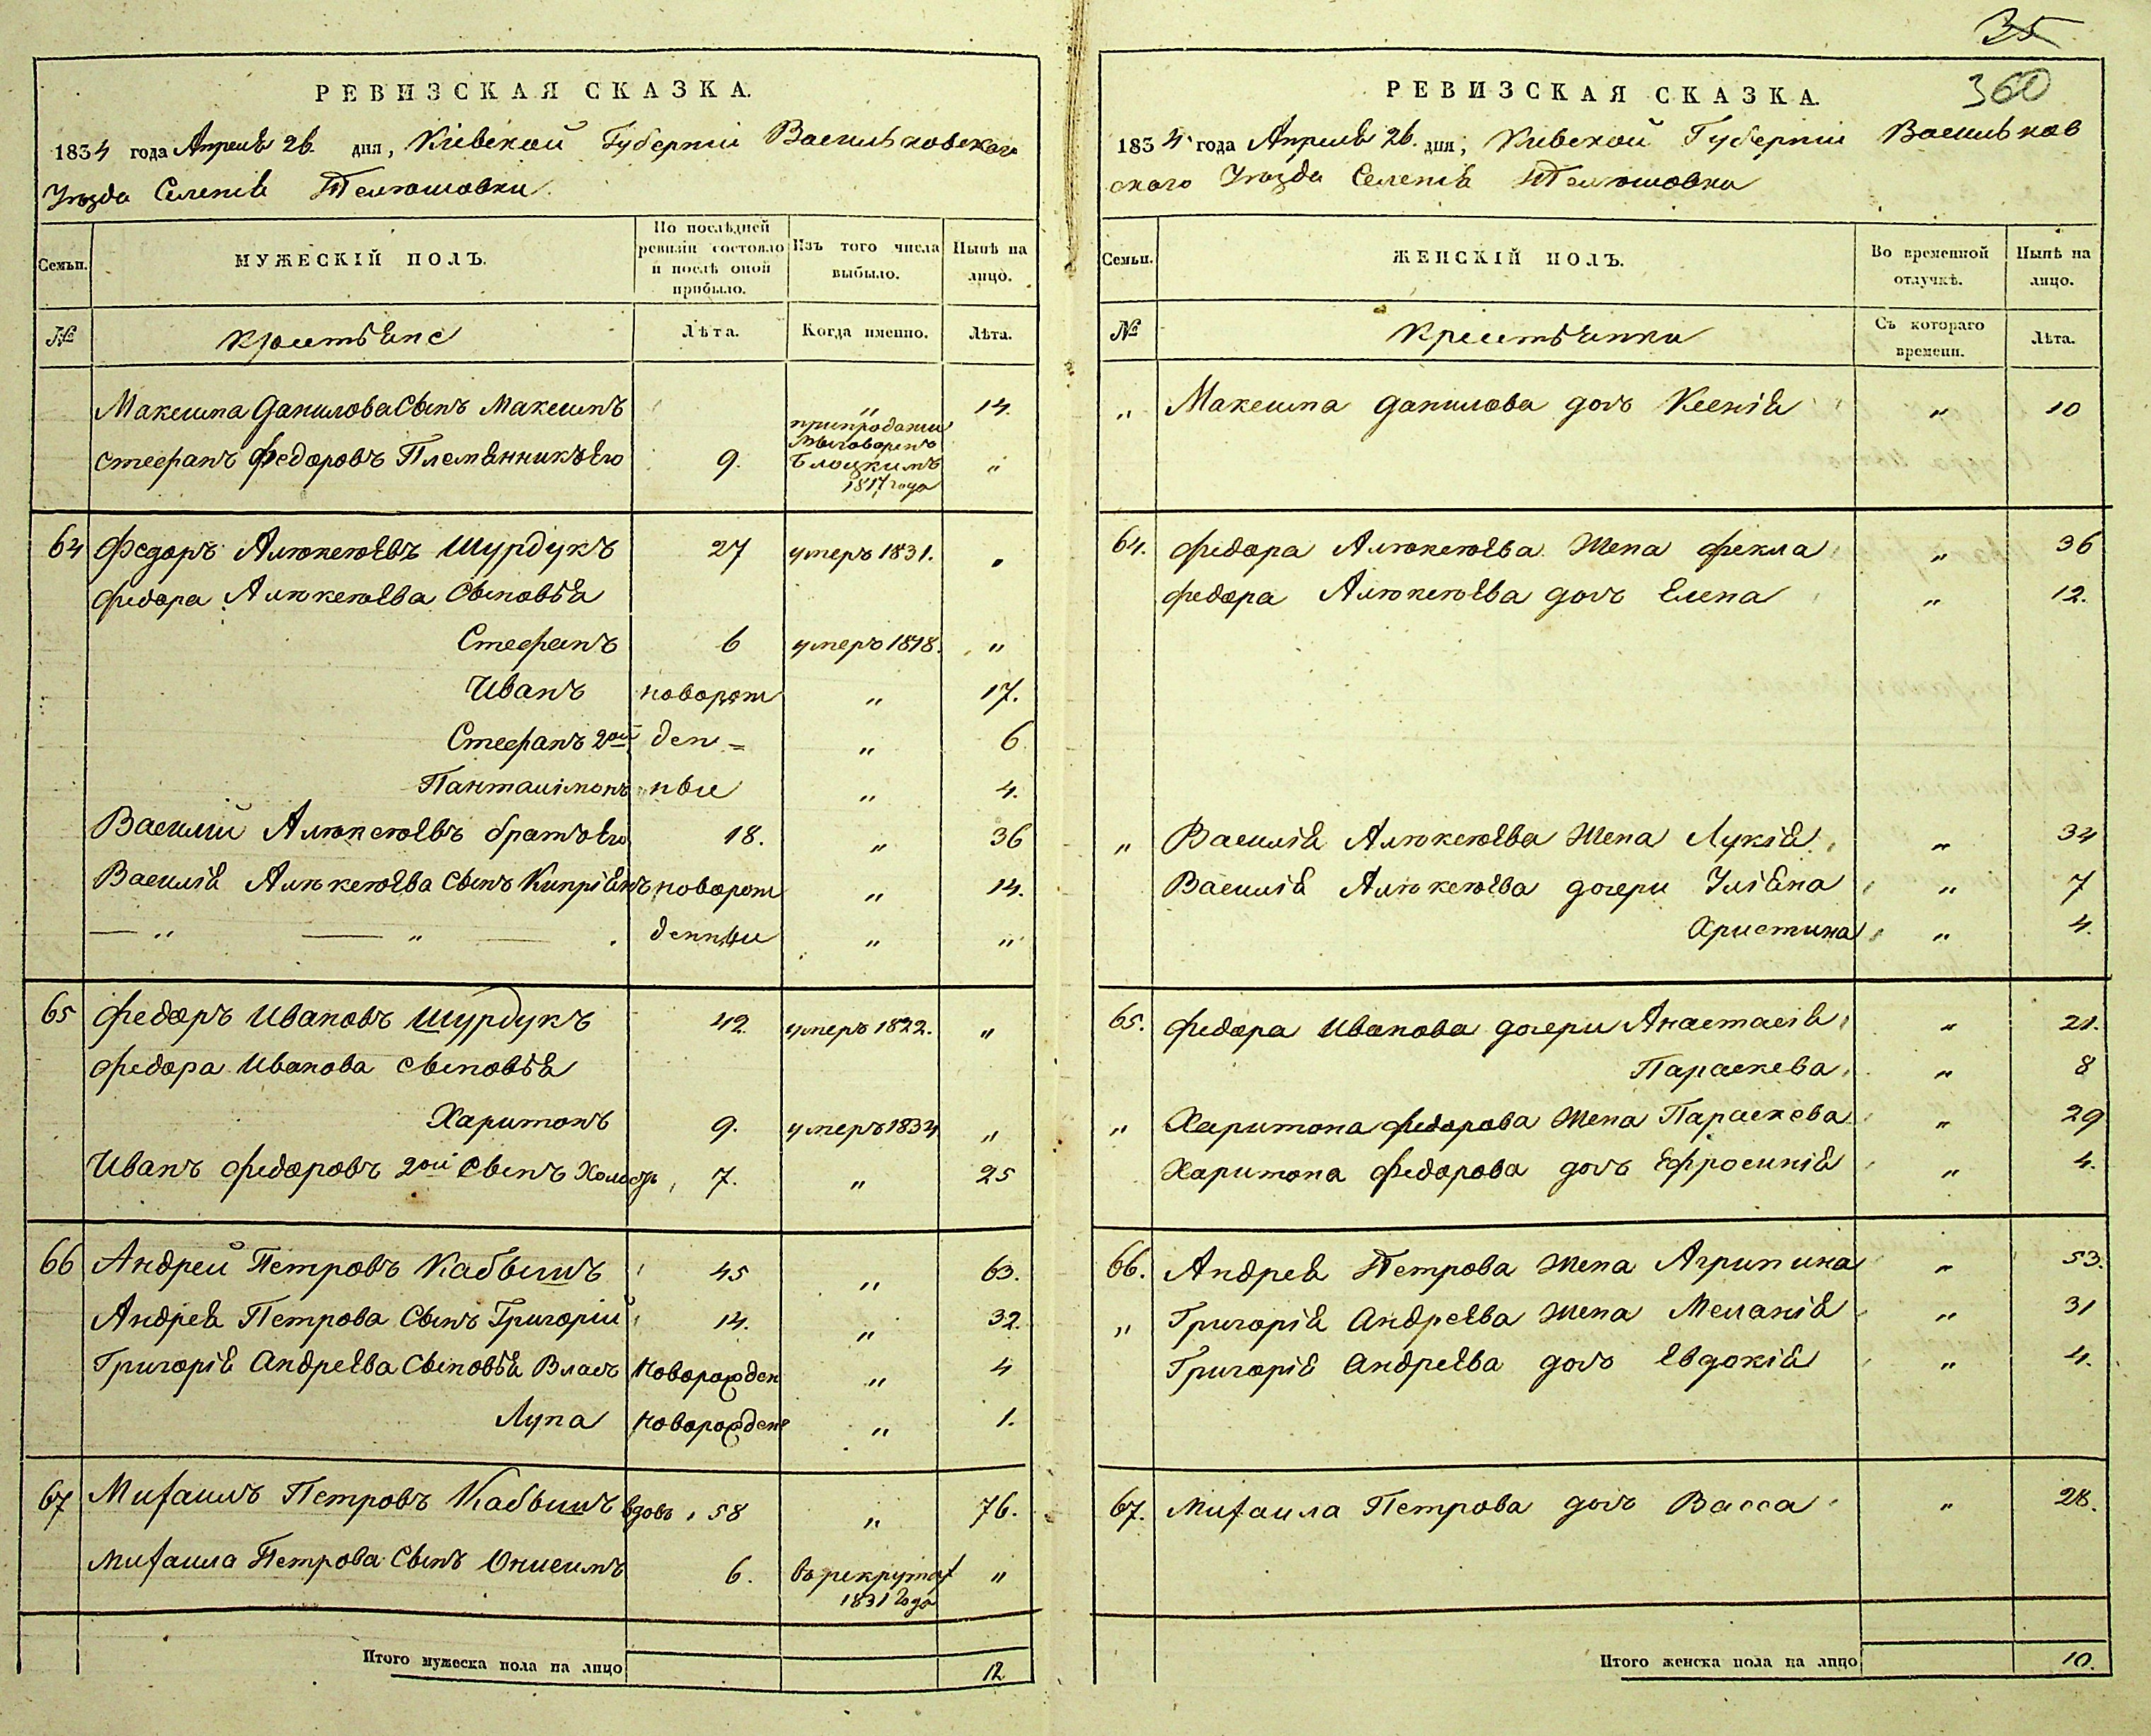 35
360
РЕВИЗСКАЯ СКАЗКА.
1834 года Апреля 26. дня, Кіевской Губерніи Васильковскаго
Уѣзда Селенія Телюшовки
Семьи.
МУЖЕСКІЙ ПОЛЪ.
По послѣдней ревизіи состояло и послѣ оной прибыло.
Изъ того числа выбыло.
Нынѣ на лицо.
№
Крестьяне
Лѣта.
Когда именно.
Лѣта.
Максима Данилова Сынъ Максимъ " 14.
Стефанъ Федоровъ Племянникъ Его 9. "
1817 года
64 Федоръ Алюксеювъ Шурдукъ 27 умеръ 1831. "
Федора Алюксеюва Сыновья
Стефанъ 6 умеръ 1818. "
Иванъ новорож " 17.
Стефанъ 2ой ден= " 6
Панталімонъ ныи " 4.
Василій Алюксеювъ братъ Его 18. " 36
Василія Алюксеюва Сынъ Кипріянъ новорож " 14.
— " — " — денныи " "
65 Федоръ Ивановъ Шурдукъ 42. умеръ 1822. "
Федора Иванова Сыновья
Харитонъ 9. умеръ 1834 "
Иванъ Федоровъ 2ой Сынъ Холостъ 7. " 25
66 Андрей Петровъ Кабышъ 45 " 63.
Андрея Петрова Сынъ Григорій 14. " 32.
Григорія Андреева Сыновья Власъ Новорожден " 4
Лупа Новорожден " 1.
67 Михаилъ Петровъ Кабышъ вдовъ 58 " 76.
Михаила Петрова Сынъ Онисимъ 6. въ рекрутах "
1831 Года
Итого мужеска пола на лицо 12
РЕВИЗСКАЯ СКАЗКА.
1834 года Апреля 26. дня, Кивской Губерніи Васильков
скаго Уѣзда Селенія Телюшовки
Семьи.
ЖЕНСКІЙ ПОЛЪ.
Во временной отлучкѣ.
Нынѣ на лицо.
№
Крестьянки
Съ котораго времени.
Лѣта.
" Максима Данилова дочь Ксенія " 10
64. Федора Алюксеюва Жена Фекла " 36
Федора Алюксеюва дочь Елена " 12.
" Василія Алюксеюва Жена Лукія " 34
Василія Алюксеюва дочери Уліяна " 7
Христина " 4.
65. Федора Иванова дочери Анастасія " 21.
Параскева " 8
" Харитона Федорова Жена Параскева " 29
Харитона Федорова дочь Ефросинія " 4.
66. Андрея Петрова Жена Агрипина " 53.
" Григорія Андреева Жена Меланія " 31
Григорія Андреева дочь Евдокія " 4.
67. Михаила Петрова дочь Васса " 28.
Итого женска пола на лицо 10.